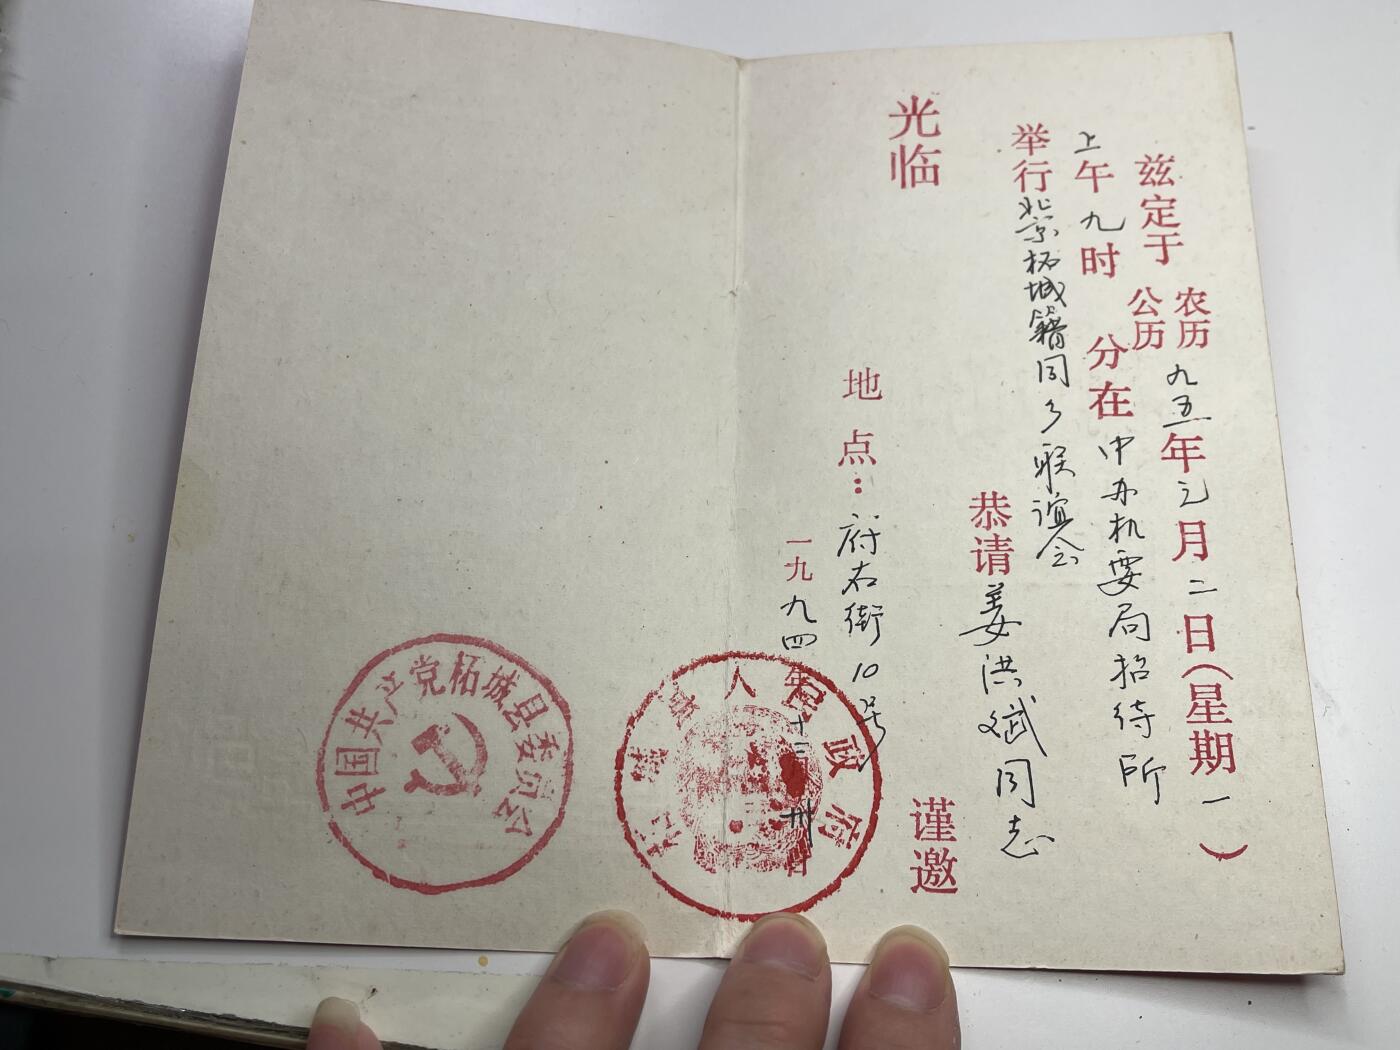 兹定于农历公历九五年元月二日（星期一）
上午九时 分在中办机要局招待所
举行北京柘城籍同乡联谊会
恭请姜洪斌同志
光临
谨邀
地点：府右街10号
一九九四年十二月卅日
柘城县人民政府
中国共产党柘城县委员会